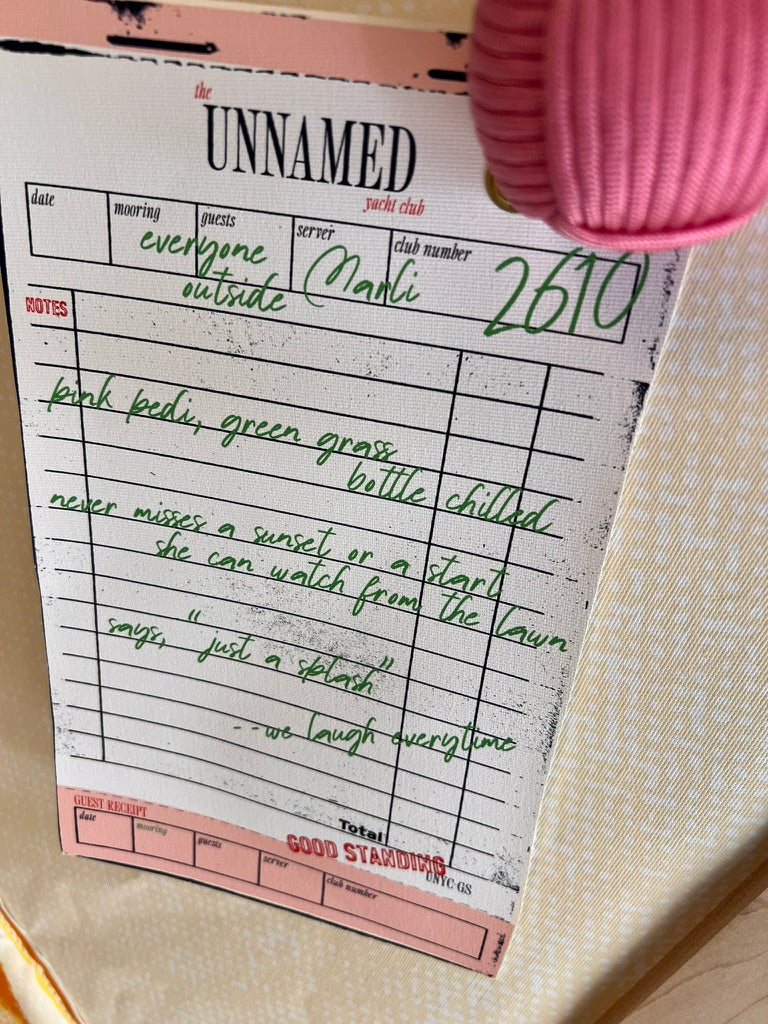 the
UNNAMED
yacht club
date mooring guests server club number
everyone outside Marli 2610
NOTES
pink pedi, green grass
bottle chilled
never misses a sunset or a start
she can watch from the lawn
says, "just a splash"
--we laugh everytime
Total
GOOD STANDING
UNYC-GS
GUEST RECEIPT
date mooring guests server club number